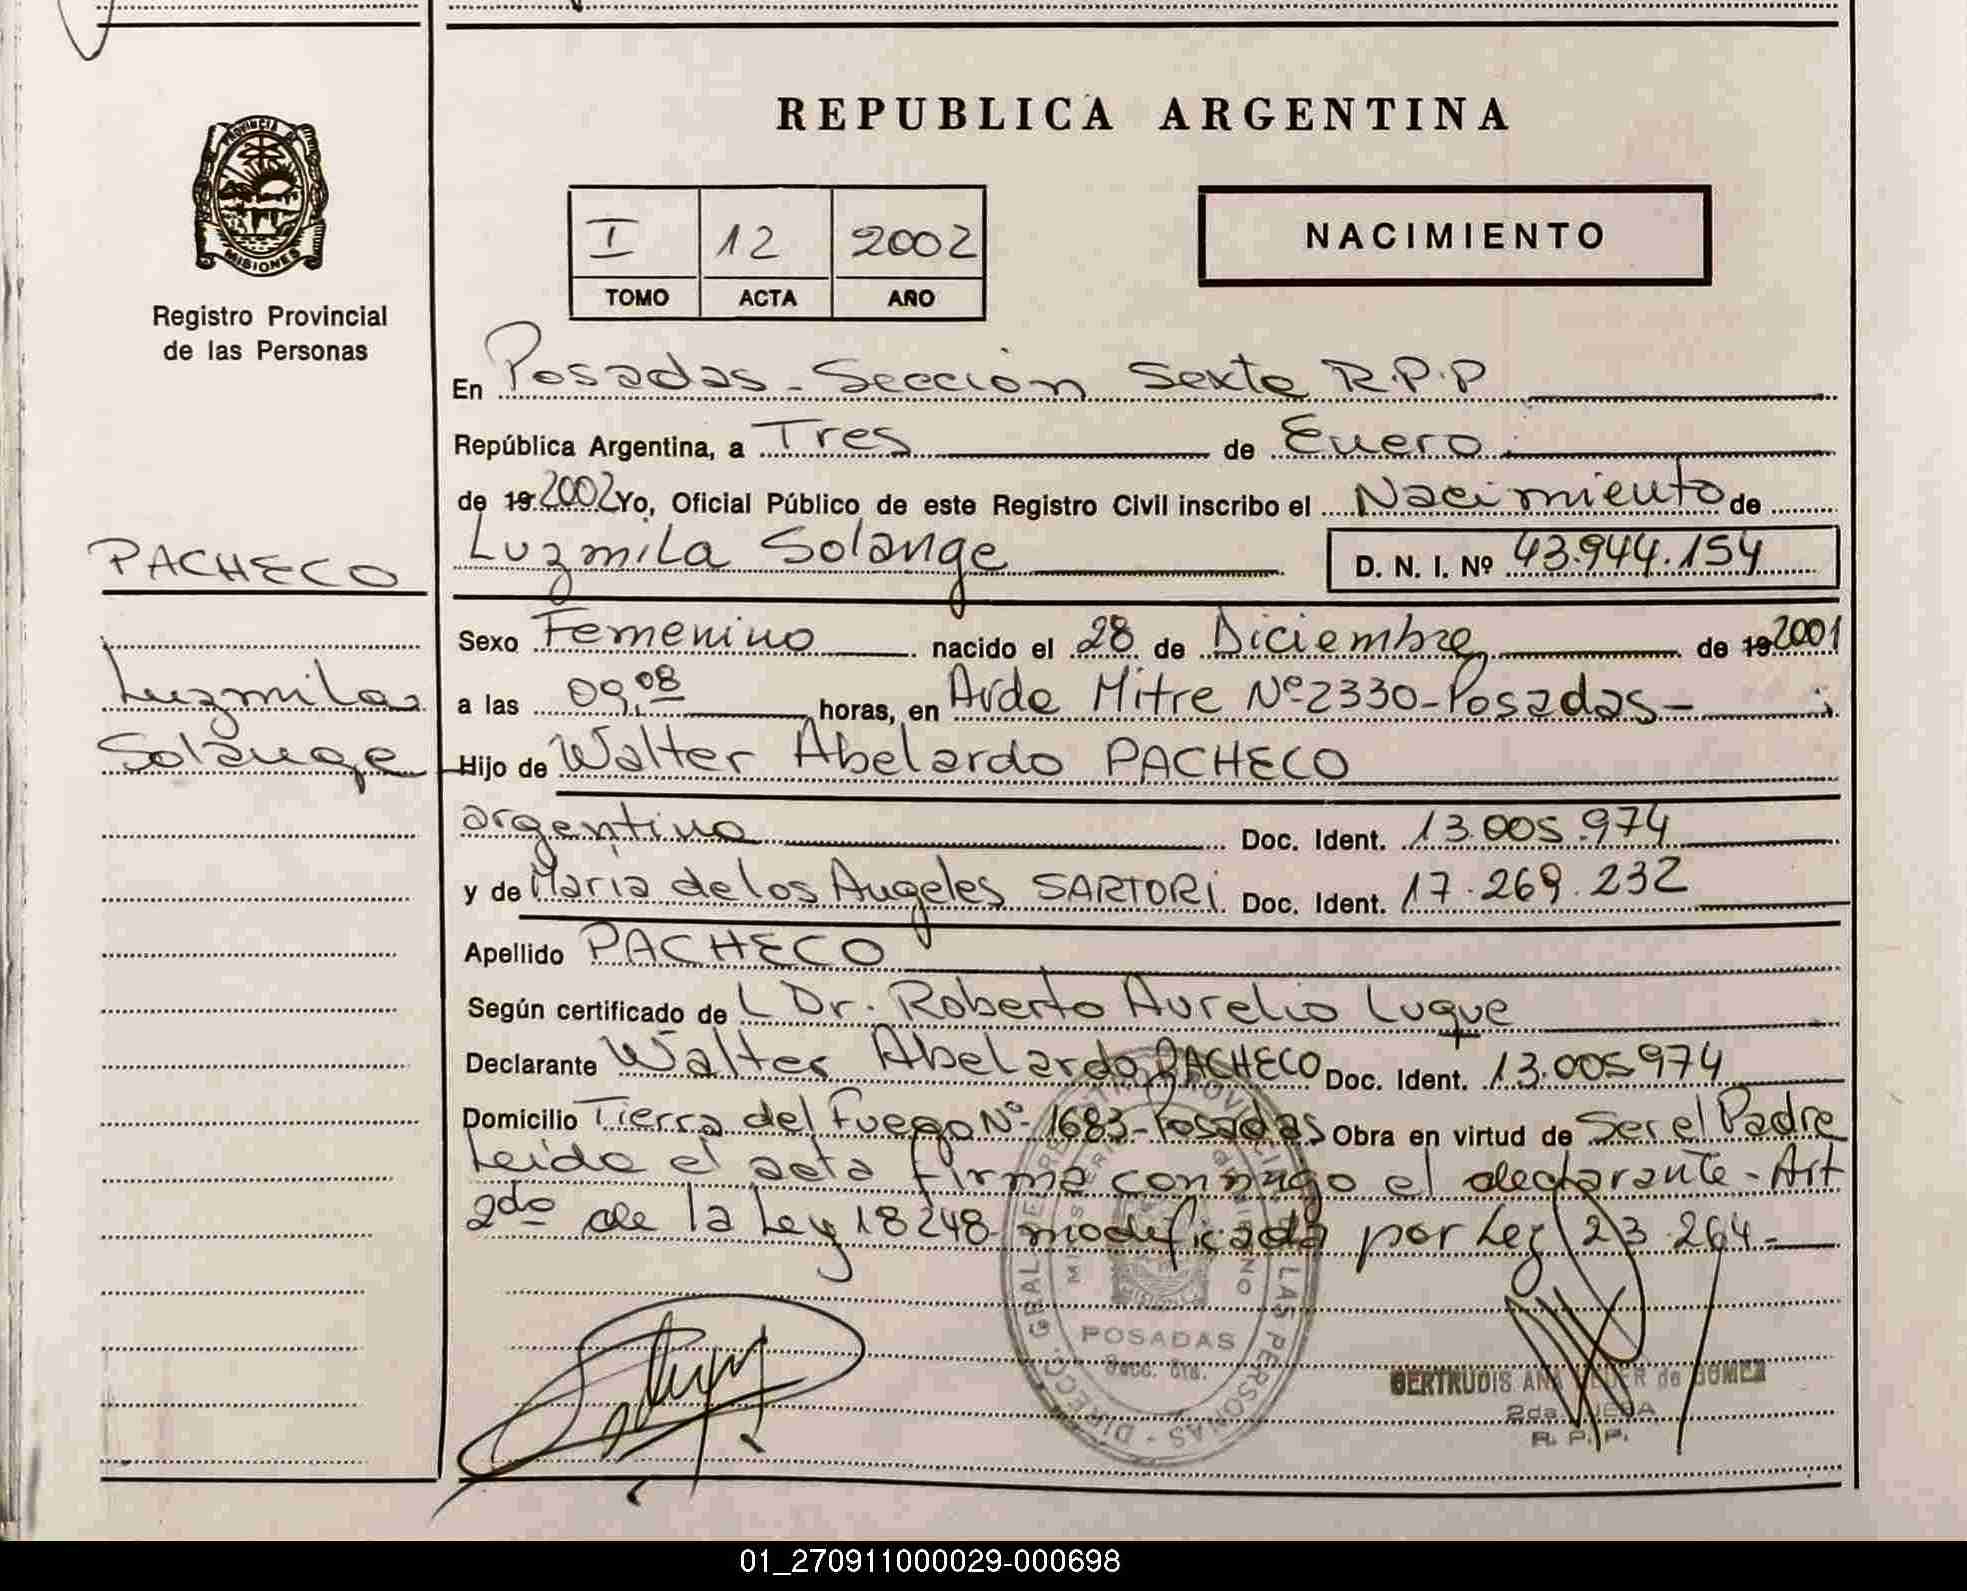 REPUBLICA ARGENTINA
PROVINCIA DE
MISIONES
Registro Provincial
de las Personas
I 12 2002
TOMO ACTA AÑO
NACIMIENTO
En Posadas - Sección Sexta R.P.P
República Argentina, a Tres de Enero
de 19 2002 Yo, Oficial Público de este Registro Civil inscribo el Nacimiento de
Luzmila Solange D. N. I. Nº 43.944.154
PACHECO
Luzmila
Solange
Sexo Femenino nacido el 28 de Diciembre de 19 2001
a las 09,08 horas, en Avda Mitre Nº 2330 - Posadas - ;
Hijo de Walter Abelardo PACHECO
argentino Doc. Ident. 13.005.974
y de María de los Angeles SARTORI Doc. Ident. 17.269.232
Apellido PACHECO
Según certificado de L Dr. Roberto Aurelio Luque
Declarante Walter Abelardo PACHECO Doc. Ident. 13.005974
Domicilio Tierra del Fuego Nº 1683 - Posadas Obra en virtud de Ser el Padre
Leida el acta firma conmigo el declarante - Art
2do de la Ley 18248 modificada por Ley 23.264 -
POSADAS
Secc. 6ta.
GERTRUDIS ANA de GOMEZ
2da.
R. P. P.
01_270911000029-000698